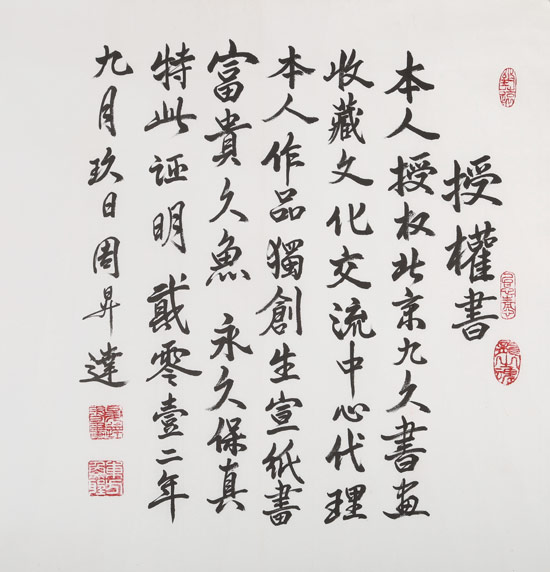 授權書
本人授权北京九久書画
收藏文化交流中心代理
本人作品獨創生宣纸畵
富貴久魚永久保真
特此证明貳零壹二年
九月玖日周昇達